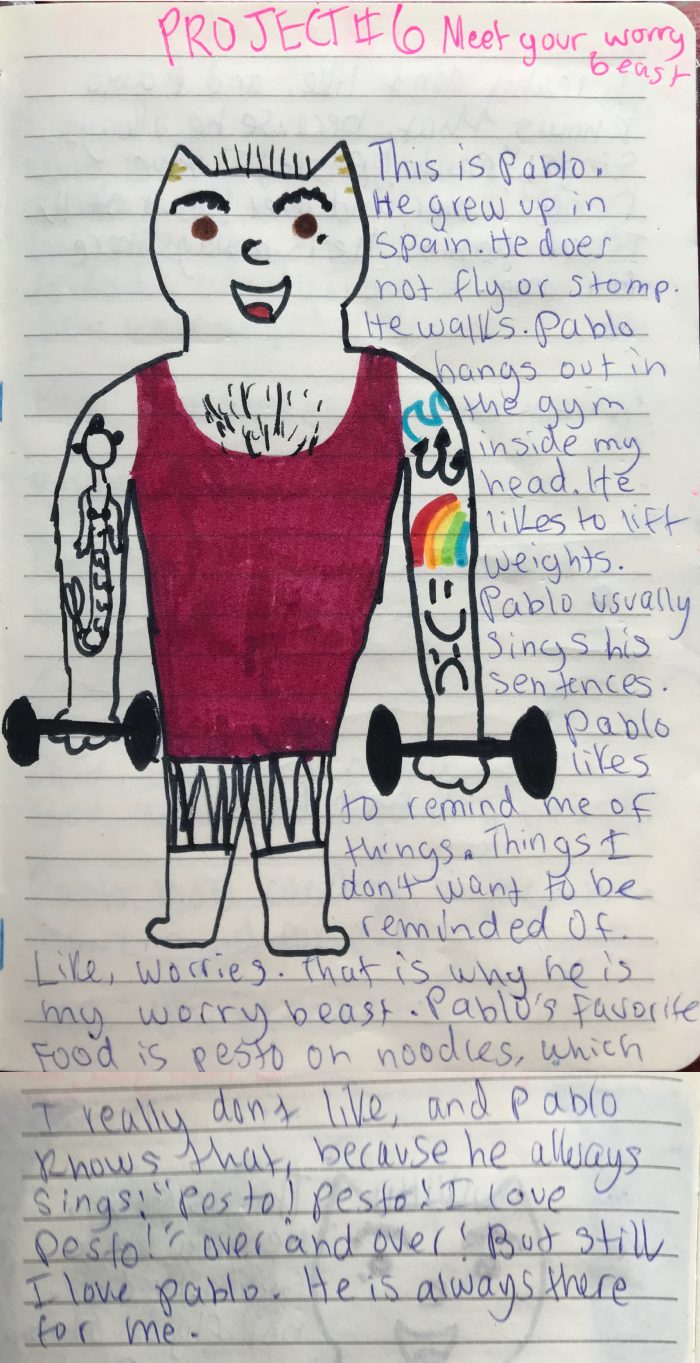 PROJECT #6 Meet your worry
beast
This is Pablo.
He grew up in
Spain. He does
not fly or stomp.
He walks. Pablo
hangs out in
the gym
inside my
head. He
likes to lift
weights.
Pablo usually
sings his
sentences.
Pablo
likes
to remind me of
things. Things I
don't want to be
reminded of.
Like, worries. That is why he is
my worry beast. Pablo's favorite
Food is pesto on noodles, which
I really don't like, and Pablo
knows that, because he allways
sings: "Pesto! Pesto! I love
pesto!" over and over! But still
I love pablo. He is always there
for me.